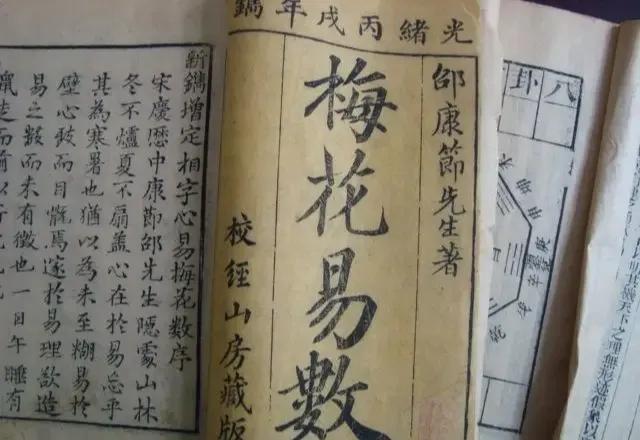 光緒丙戌年鐫
邵康節先生著
梅花易數
校經山房藏版
新鐫增定相字心易梅花數序
宋慶歷中康節邵先生隱處山林
冬不爐夏不扇蓋心在於易忘乎
其為寒暑也猶以為未至糊易於
壁心致而目翫焉邃於易理欲造
易之數而未有徵也一日午睡有
鼠走而前以
八卦
天下之理無形迹假象以